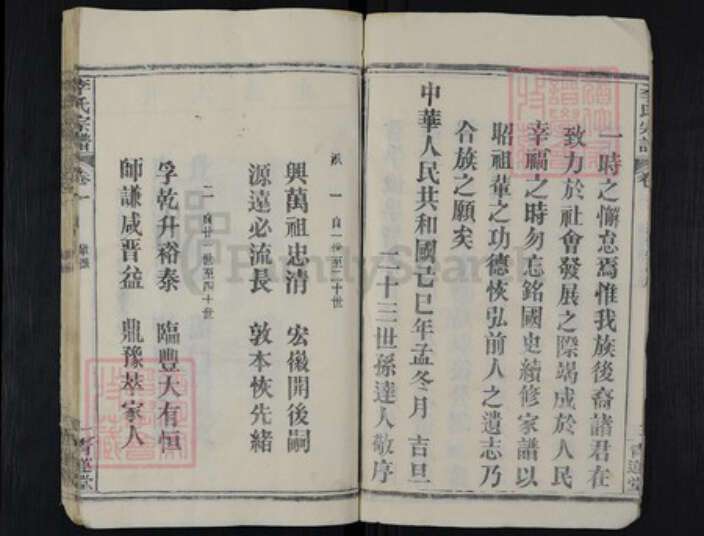 李氏宗譜
一時之懈怠焉惟我族後裔諸君在
致力於社會發展之際竭成於人民
幸福之時勿忘銘國史續修家譜以
昭祖輩之功德恢弘前人之遺志乃
合族之願矣
中華人民共和國己巳年孟冬月 吉旦
二十三世孫達人敬序
派一 自一世至二十世
興萬祖忠清 宏徽開後嗣
源遠必流長 敦本恢先緒
二 自廿一世至四十世
孚乾升裕泰 臨豐大有恒
師謙咸晋益 鼎豫萃家人
李氏宗譜 卷一
青蓮堂
FamilySearch